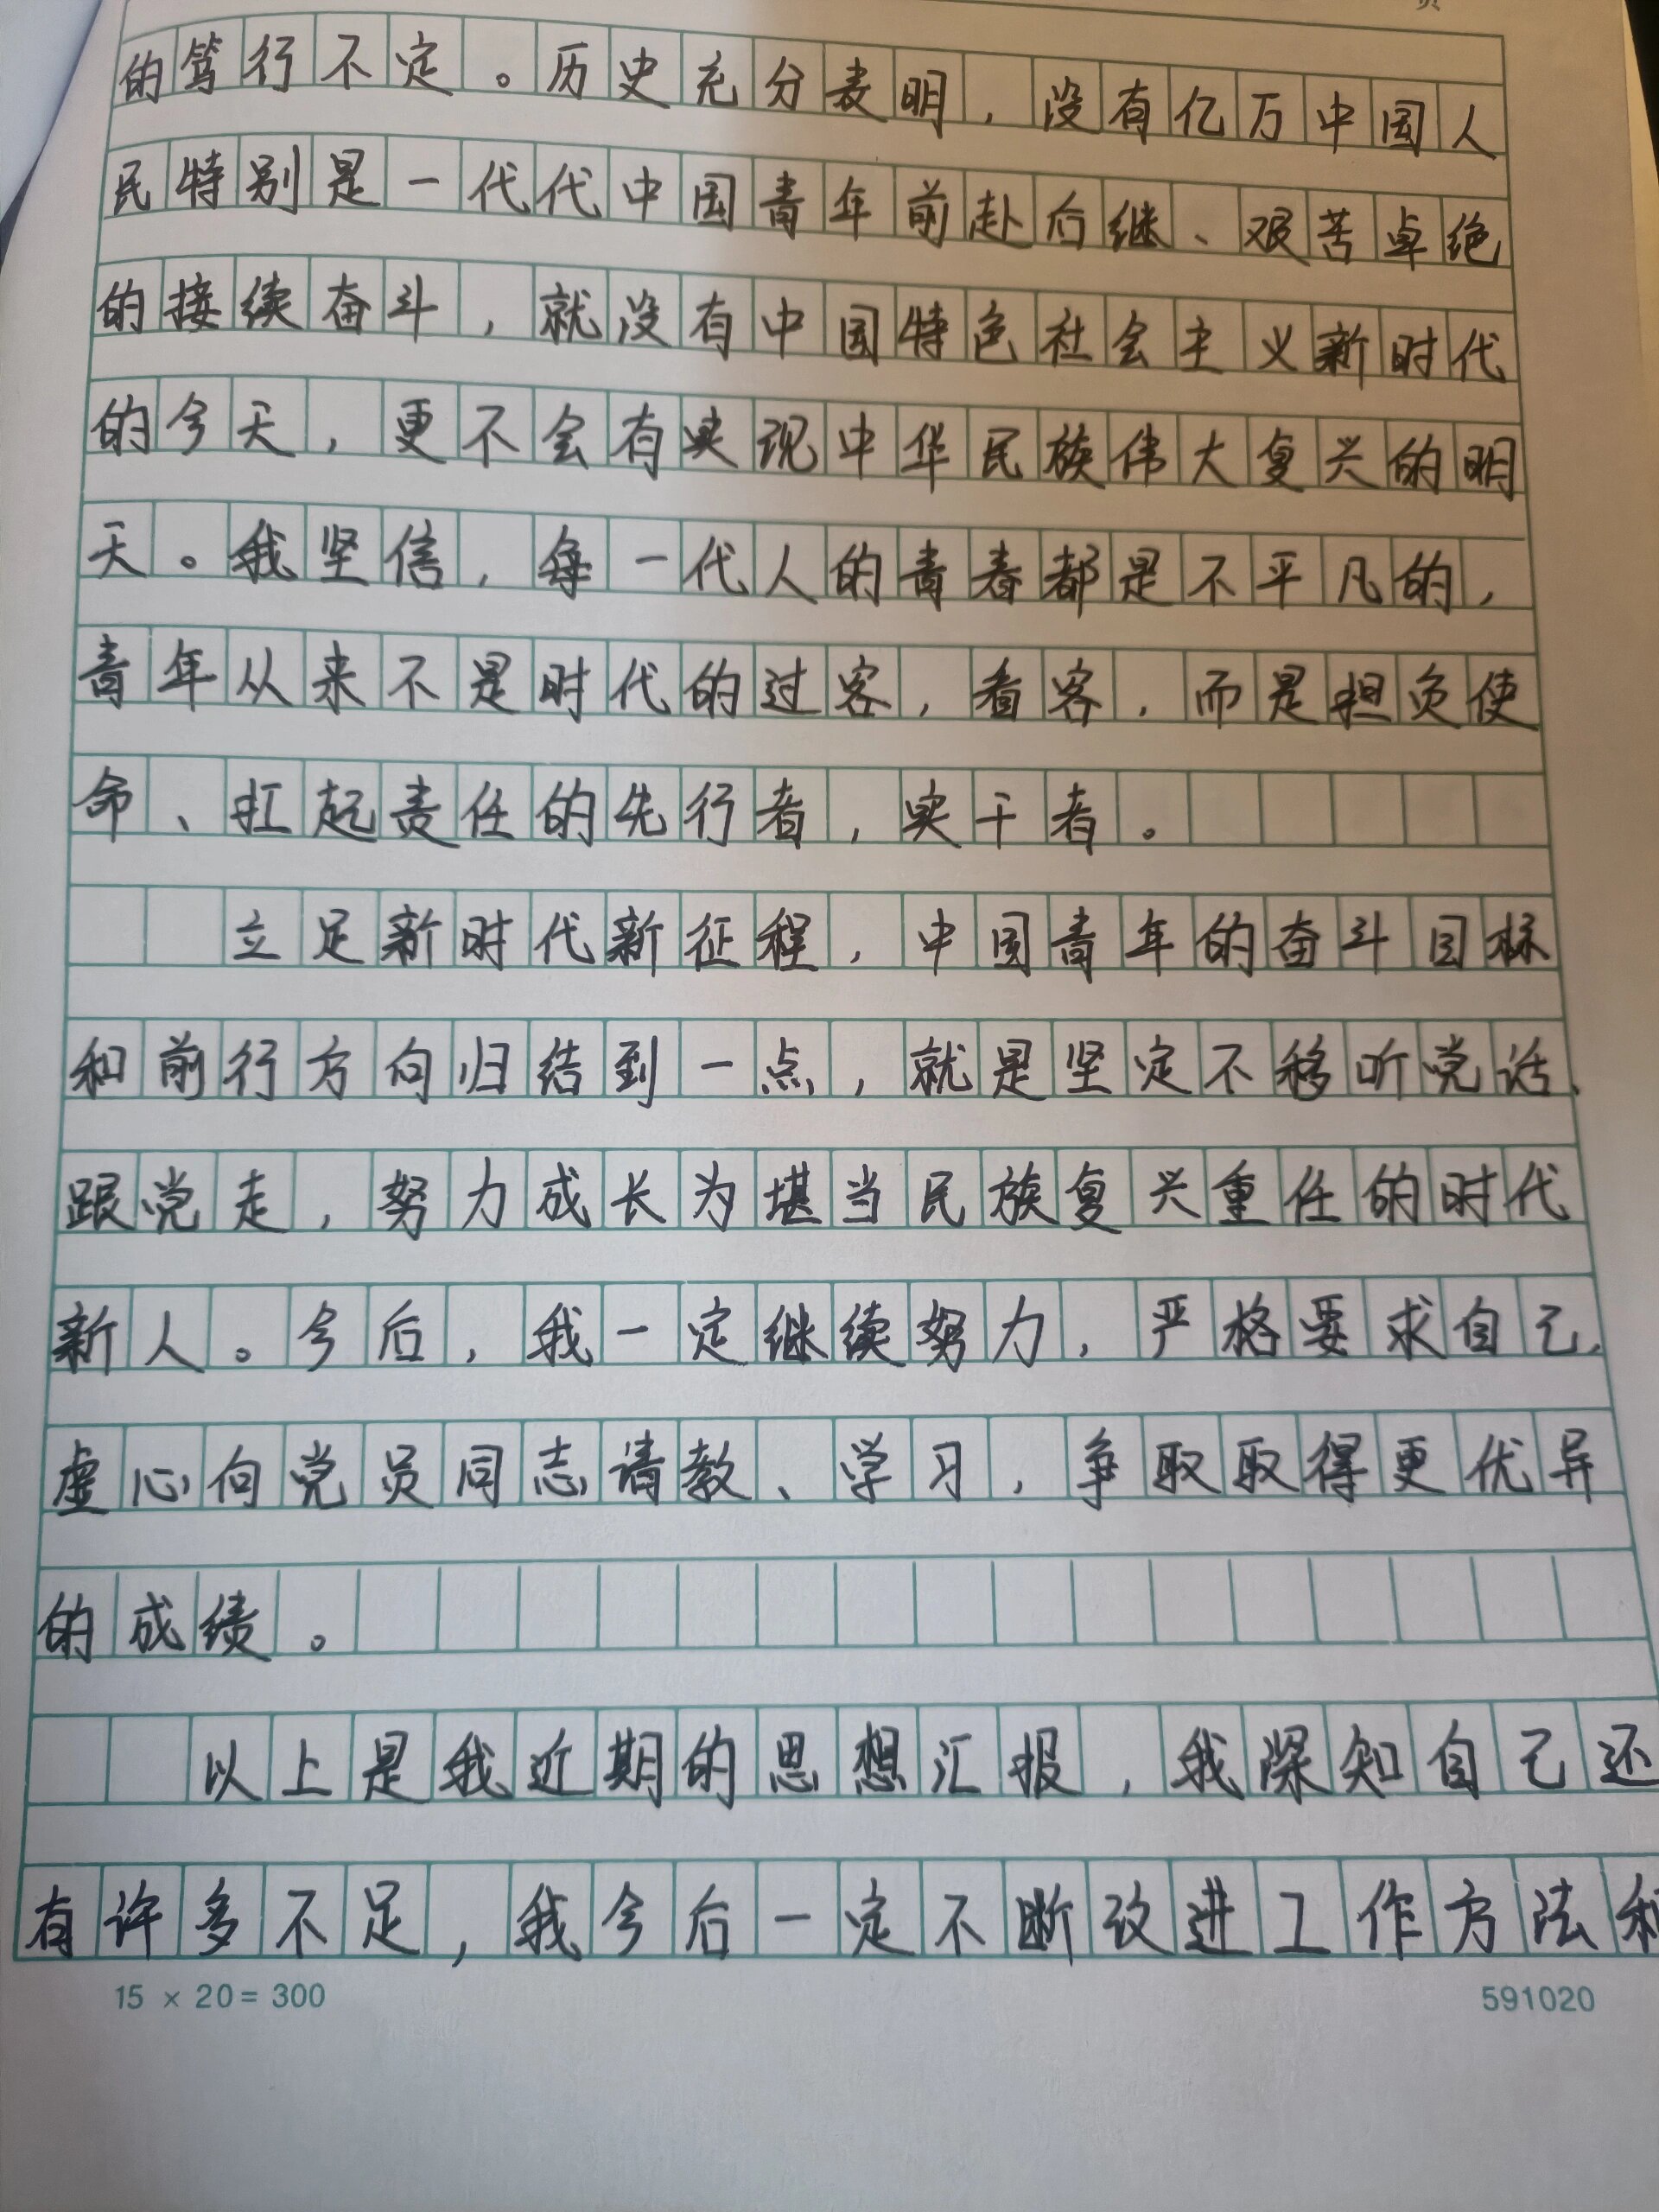 的笃行不定。历史充分表明，没有亿万中国人
民特别是一代代中国青年前赴后继、艰苦卓绝
的接续奋斗，就没有中国特色社会主义新时代
的今天，更不会有实现中华民族伟大复兴的明
天。我坚信，每一代人的青春都是不平凡的，
青年从来不是时代的过客，看客，而是担负使
命、扛起责任的先行者，实干者。
立足新时代新征程，中国青年的奋斗目标
和前行方向归结到一点，就是坚定不移听党话、
跟党走，努力成长为堪当民族复兴重任的时代
新人。今后，我一定继续努力，严格要求自己，
虚心向党员同志请教、学习，争取取得更优异
的成绩。
以上是我近期的思想汇报，我深知自己还
有许多不足，我今后一定不断改进工作方法和
15 × 20 = 300 591020